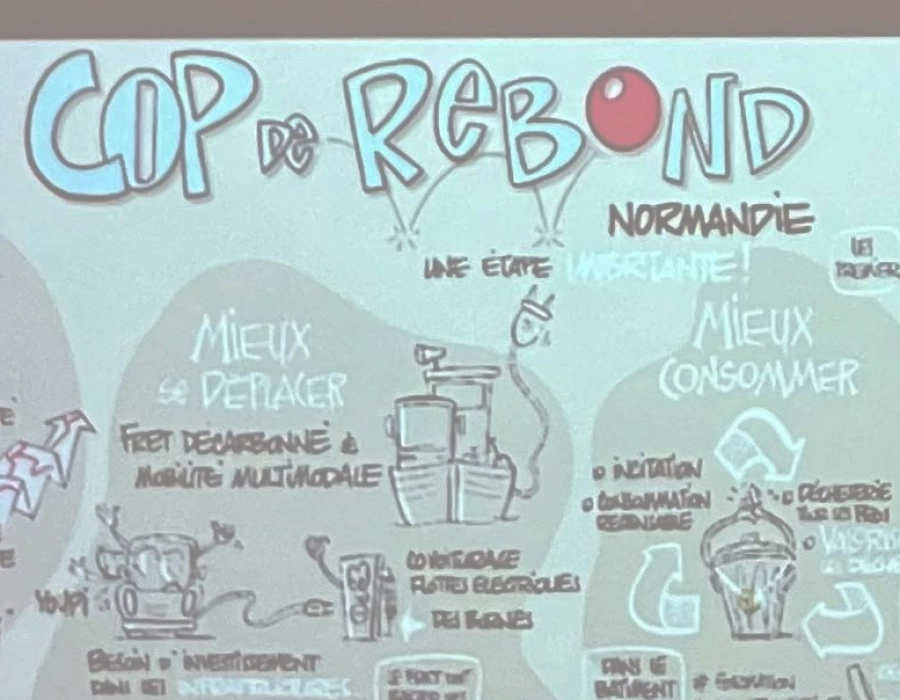 COP DE REBOND
NORMANDIE
UNE ÉTAPE IMPORTANTE!
MIEUX
SE DEPLACER
FRET DÉCARBONNÉ &
MOBILITÉ MULTIMODALE
COVOITURAGE
FLOTTES ÉLECTRIQUES
DES BORNES
YOUPI
BESOIN D'INVESTISSEMENT
DANS LES INFRASTRUCTURES
MIEUX
CONSOMMER
INCITATION
CONSOMMATION
RESPONSABLE
DÉCHETTERIE
DANS LE
BÂTIMENT